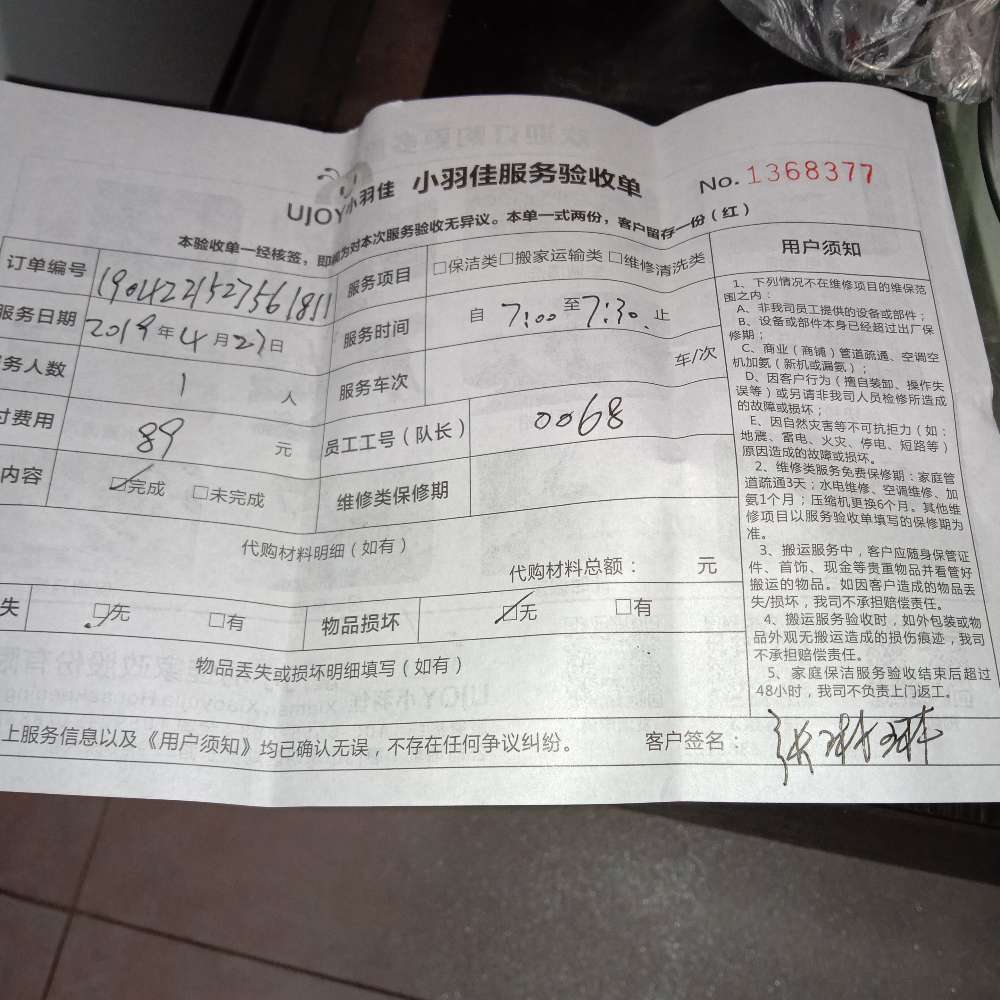 UJOY小羽佳 小羽佳服务验收单 No.1368377
本验收单一经核签，即视为对本次服务验收无异议。本单一式两份，客户留存一份（红）
订单编号 190422152756 1811 服务项目 □保洁类□搬家运输类□维修清洗类
服务日期 2019年4月23日 服务时间 自 7:00 至 7:30 止
务人数 1 人 服务车次 车/次
付费用 89 元 员工工号（队长） 0068
内容 ☑完成 □未完成 维修类保修期
代购材料明细（如有）
代购材料总额： 元
失 ☑无 □有 物品损坏 ☑无 □有
物品丢失或损坏明细填写（如有）
上服务信息以及《用户须知》均已确认无误，不存在任何争议纠纷。 客户签名：
用户须知
1、下列情况不在维修项目的维保范
围之内：
A、非我司员工提供的设备或部件；
B、设备或部件本身已经超过出厂保
修期；
C、商业（商铺）管道疏通、空调空
机加氨（新机或漏氨）；
D、因客户行为（擅自装卸、操作失
误等）或另请非我司人员检修所造成
的故障或损坏；
E、因自然灾害等不可抗拒力（如：
地震、雷电、火灾、停电、短路等）
原因造成的故障或损坏。
2、维修类服务免费保修期：家庭管
道疏通3天；水电维修、空调维修、加
氨1个月；压缩机更换6个月。其他维
修项目以服务验收单填写的保修期为
准。
3、搬运服务中，客户应随身保管证
件、首饰、现金等贵重物品并看管好
搬运的物品。如因客户造成的物品丢
失/损坏，我司不承担赔偿责任。
4、搬运服务验收时，如外包装或物
品外观无搬运造成的损伤痕迹，我司
不承担赔偿责任。
5、家庭保洁服务验收结束后超过
48小时，我司不负责上门返工。